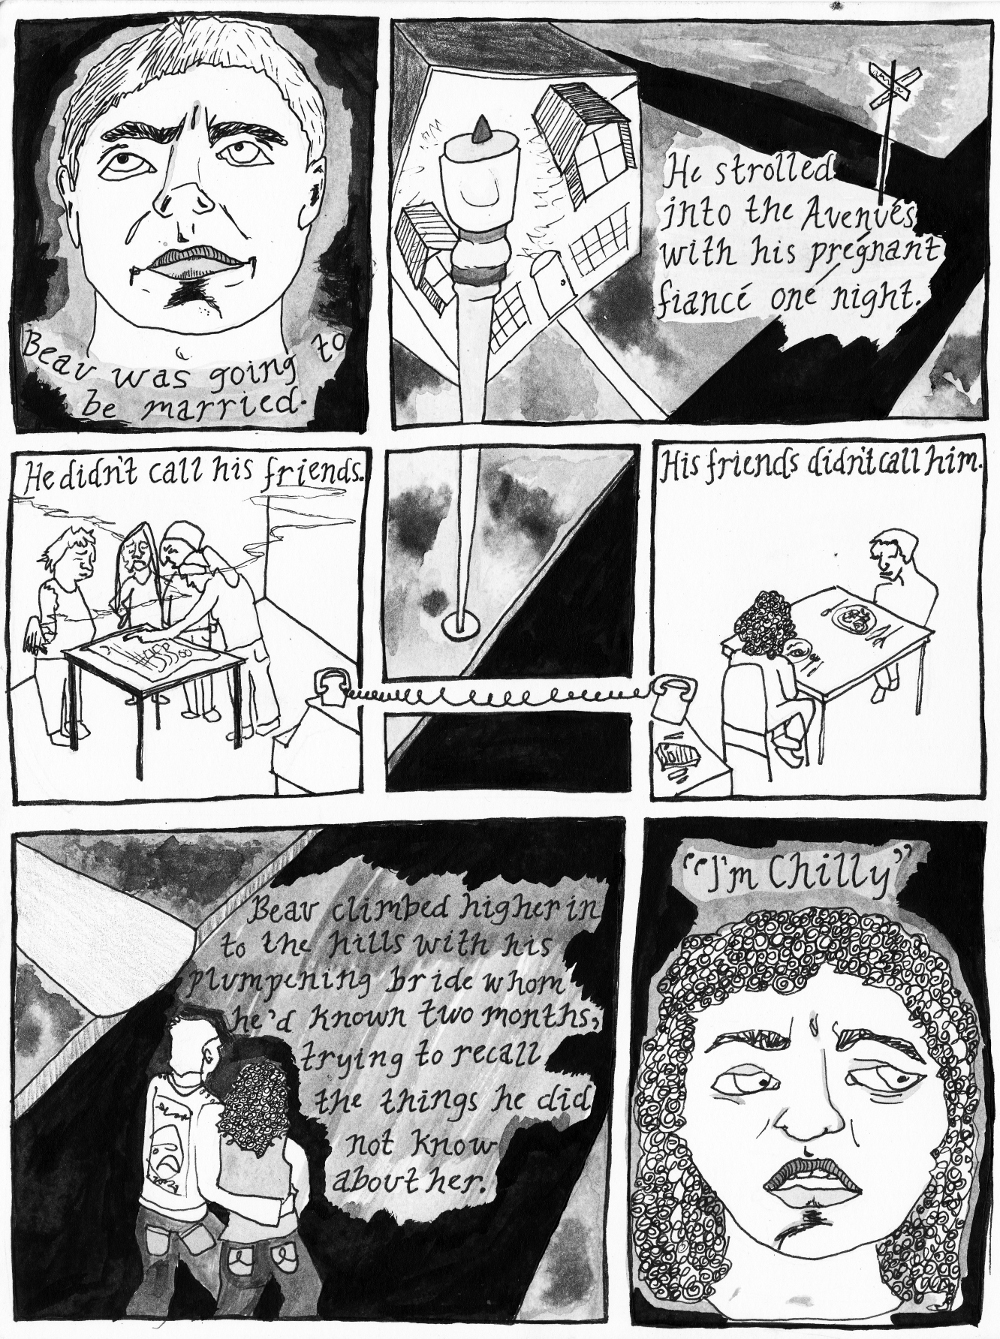 Beav was going to
be married.
He strolled
into the Avenues
with his pregnant
fiancé one night.
He didn't call his friends.
His friends didn't call him.
Beav climbed higher in
to the hills with his
plumpening bride whom
he'd known two months,
trying to recall
the things he did
not know
about her.
"I'm Chilly"